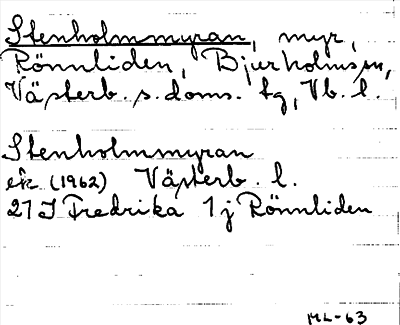 Stenholmmyran, myr,
Rönnliden, Bjurholms sn,
Västerb. s. doms. tg, Vb. l.
Stenholmmyran
ek. (1962) Västerb. l.
21 J Fredrika 1 j Rönnliden
ML-63